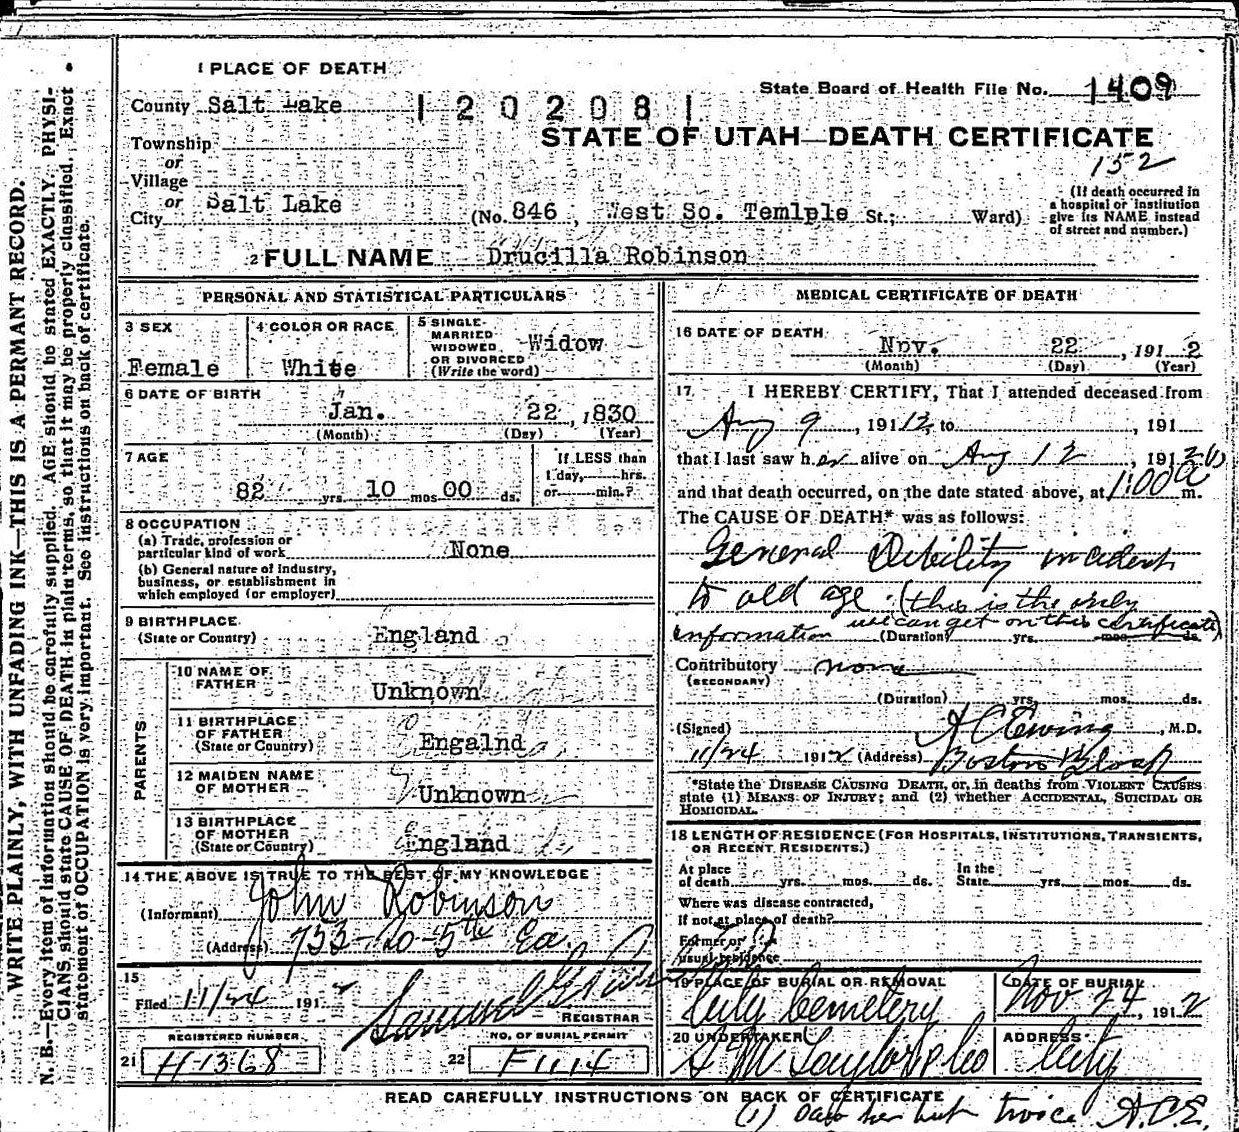 1 PLACE OF DEATH
State Board of Health File No. 1409
County Salt Lake
1 20208 1
Township
STATE OF UTAH—DEATH CERTIFICATE
or
Village
152
or
City Salt Lake
(No. 846, West So. Temlple St.; Ward)
(If death occurred in
a hospital or institution
give its NAME instead
of street and number.)
2 FULL NAME Drucilla Robinson
PERSONAL AND STATISTICAL PARTICULARS
3 SEX
Female
4 COLOR OR RACE
White
5 SINGLE
MARRIED
WIDOWED
OR DIVORCED
(Write the word)
Widow
6 DATE OF BIRTH
Jan. 22, 1830
(Month) (Day) (Year)
7 AGE
82 yrs. 10 mos 00 ds.
If LESS than
1 day, hrs.
or min.?
8 OCCUPATION
(a) Trade, profession or
particular kind of work None
(b) General nature of industry,
business, or establishment in
which employed (or employer)
9 BIRTHPLACE
(State or Country) England
PARENTS
10 NAME OF
FATHER Unknown
11 BIRTHPLACE
OF FATHER
(State or Country) Engalnd
12 MAIDEN NAME
OF MOTHER Unknown
13 BIRTHPLACE
OF MOTHER
(State or Country) England
14 THE ABOVE IS TRUE TO THE BEST OF MY KNOWLEDGE
(Informant) John Robinson
(Address) 733-20-5th Ea.
15
Filed 11/24 1912
Samuel G
REGISTRAR
REGISTERED NUMBER
21 H-1368
NO. OF BURIAL PERMIT
22 F1114
MEDICAL CERTIFICATE OF DEATH
16 DATE OF DEATH
Nov. 22, 1912
(Month) (Day) (Year)
17 I HEREBY CERTIFY, That I attended deceased from
Aug 9, 191 12, to , 191
that I last saw her alive on Aug 12, 1912 (1)
and that death occurred, on the date stated above, at 1:00 a m.
The CAUSE OF DEATH* was as follows:
General Debility incident
to old age. (this is the only
information we can get on this certificate)
(Duration) yrs. mos. ds.
Contributory none
(SECONDARY)
(Duration) yrs. mos. ds.
(Signed) A C Ewing, M.D.
11/24 1912 (Address) Boston Block
*State the DISEASE CAUSING DEATH, or, in deaths from VIOLENT CAUSES
state (1) MEANS OF INJURY; and (2) whether ACCIDENTAL, SUICIDAL OR
HOMICIDAL.
18 LENGTH OF RESIDENCE (FOR HOSPITALS, INSTITUTIONS, TRANSIENTS,
OR RECENT RESIDENTS.)
At place
of death yrs. mos. ds.
In the
State yrs. mos. ds.
Where was disease contracted,
If not at place of death?
Former or
usual residence
19 PLACE OF BURIAL OR REMOVAL
City Cemetery
DATE OF BURIAL
Nov 24, 1912
20 UNDERTAKER
S M Taylor & Co
ADDRESS
City
READ CAREFULLY INSTRUCTIONS ON BACK OF CERTIFICATE
(1) Saw her but twice A.C.E.
WRITE PLAINLY, WITH UNFADING INK—THIS IS A PERMANT RECORD.
N. B.—Every item of information should be carefully supplied. AGE should be stated EXACTLY. PHYSI-
CIANS should state CAUSE OF DEATH in plain terms, so that it may be properly classified. Exact
statement of OCCUPATION is very important. See instructions on back of certificate.